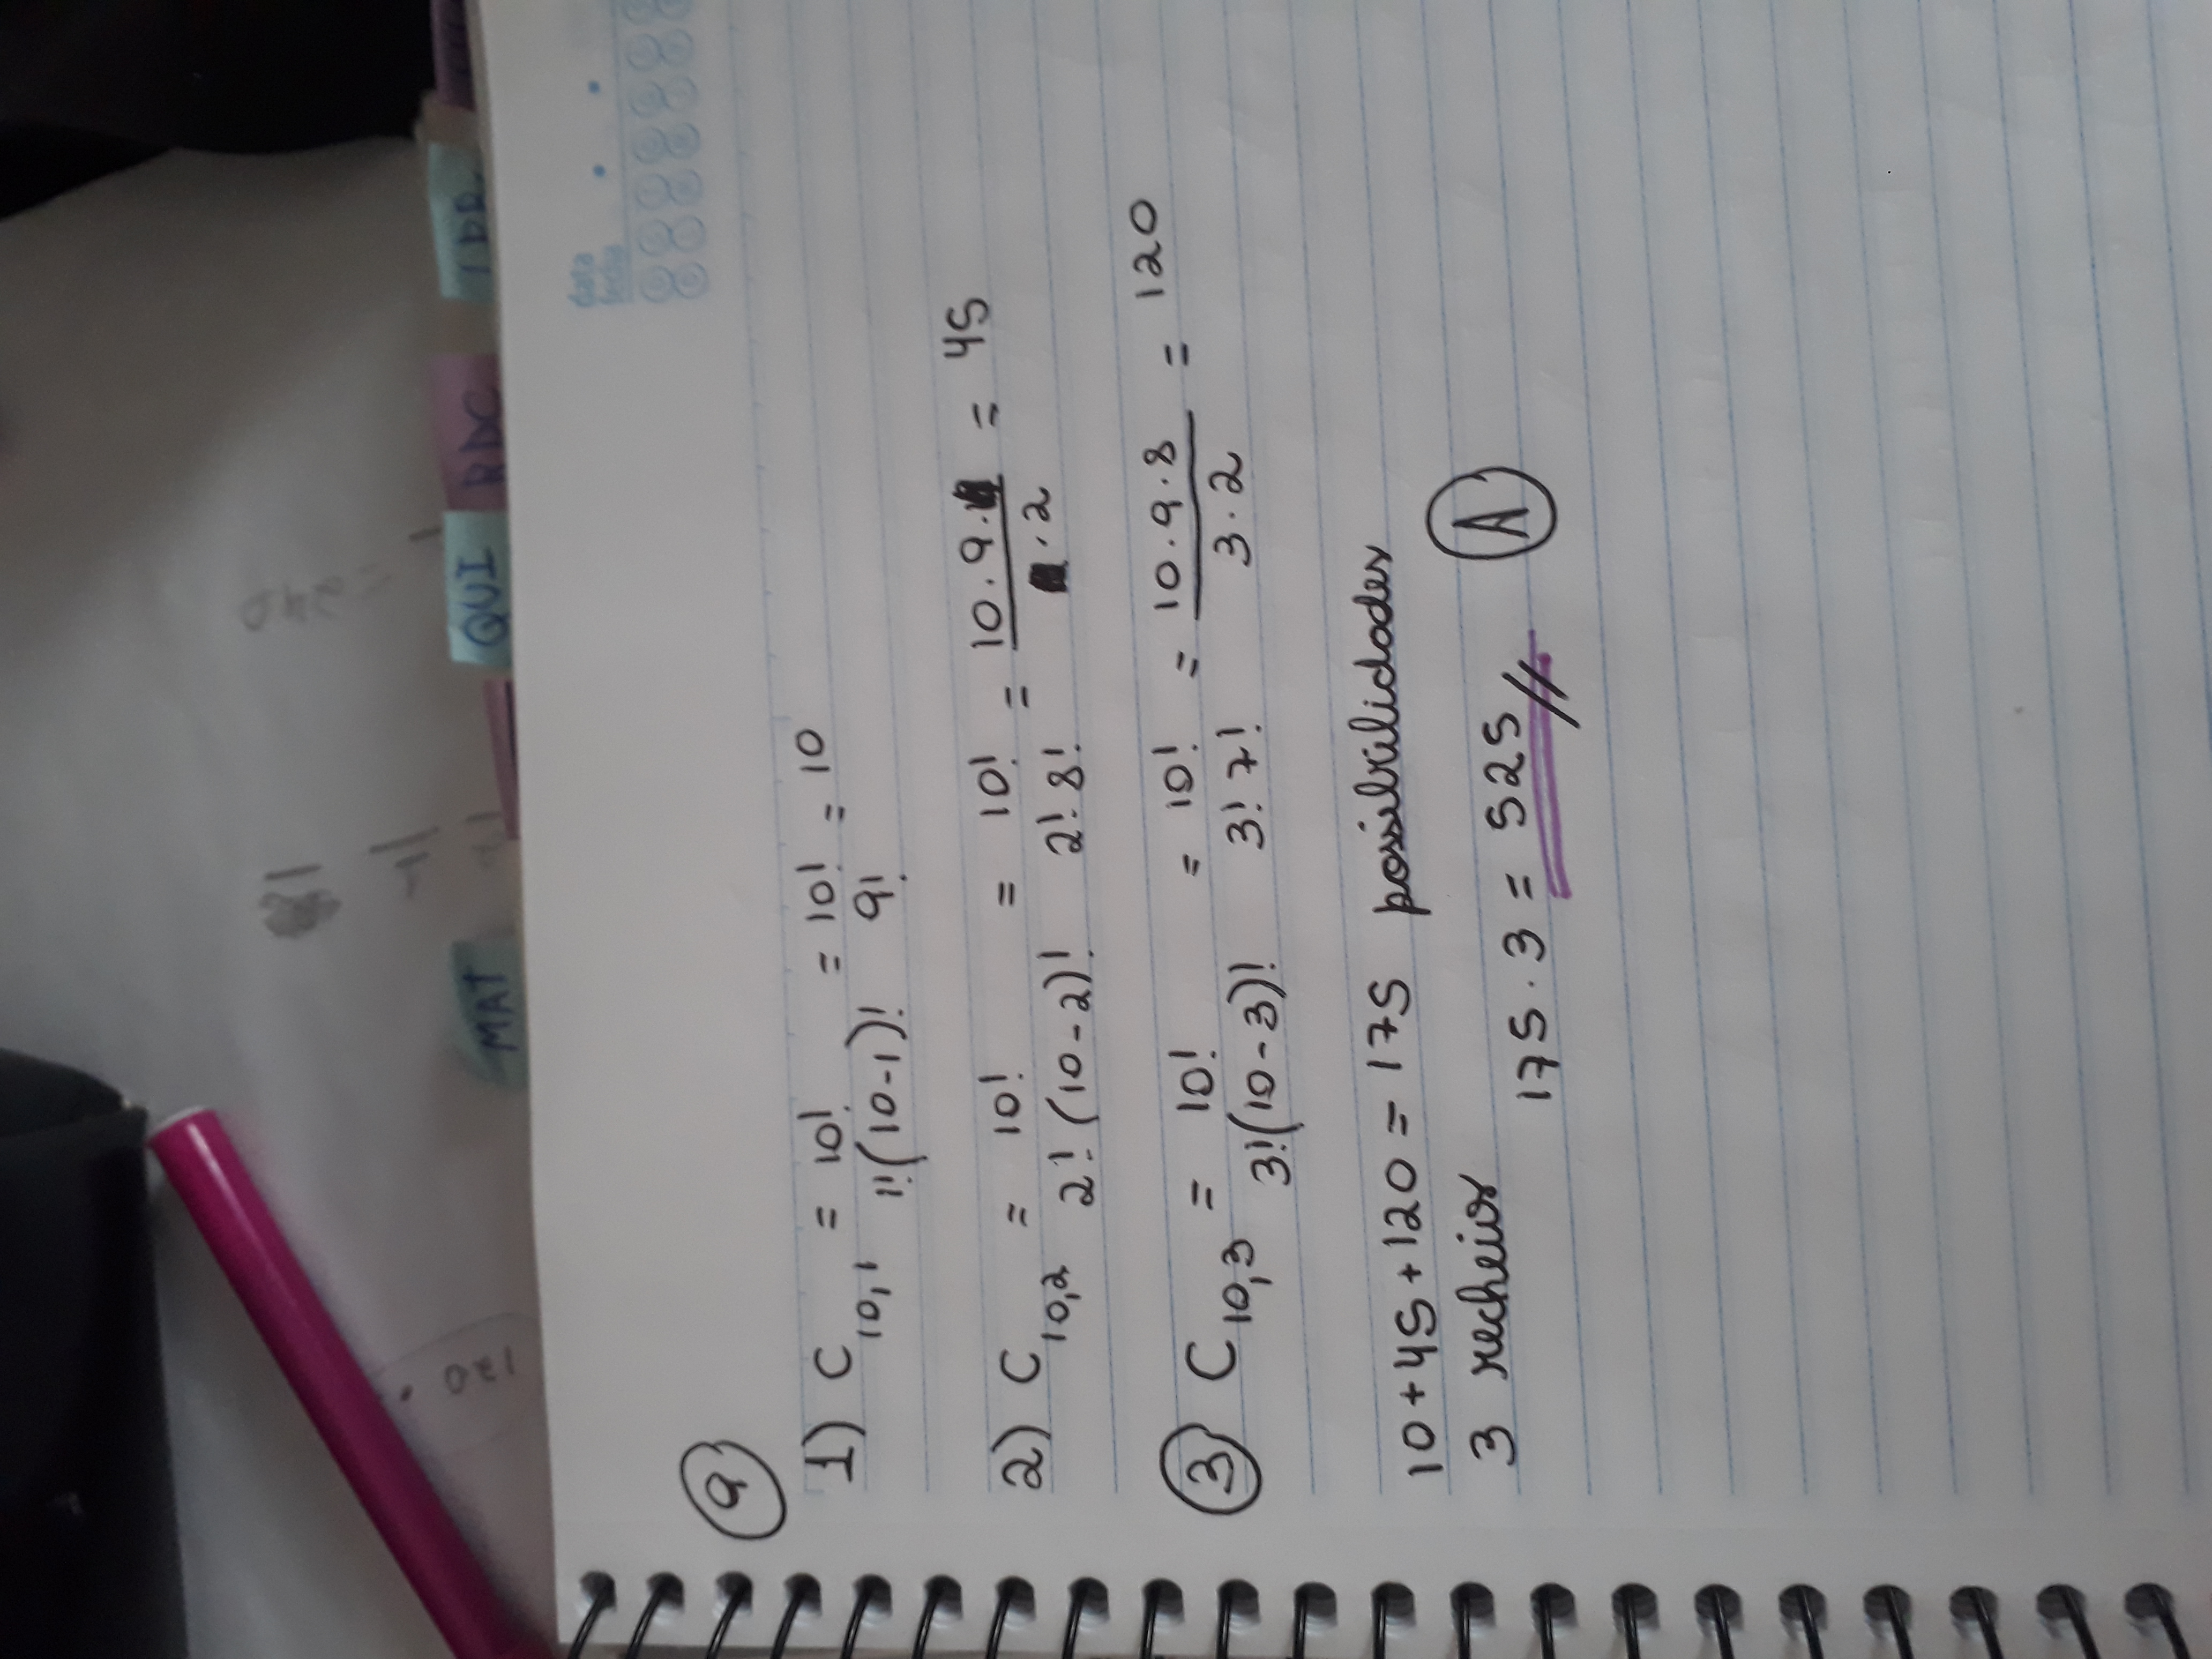 MAT QUI RDC
data
fecha
9
1) C10,1 = 10! / 1!(10-1)! = 10! / 9! = 10
2) C10,2 = 10! / 2!(10-2)! = 10! / 2! 8! = 10.9. / .2 = 45
3 C10,3 = 10! / 3!(10-3)! = 10! / 3! 7! = 10.9.8 / 3.2 = 120
10+45+120 = 175 possibilidades
3 recheios
175.3 = 525// A